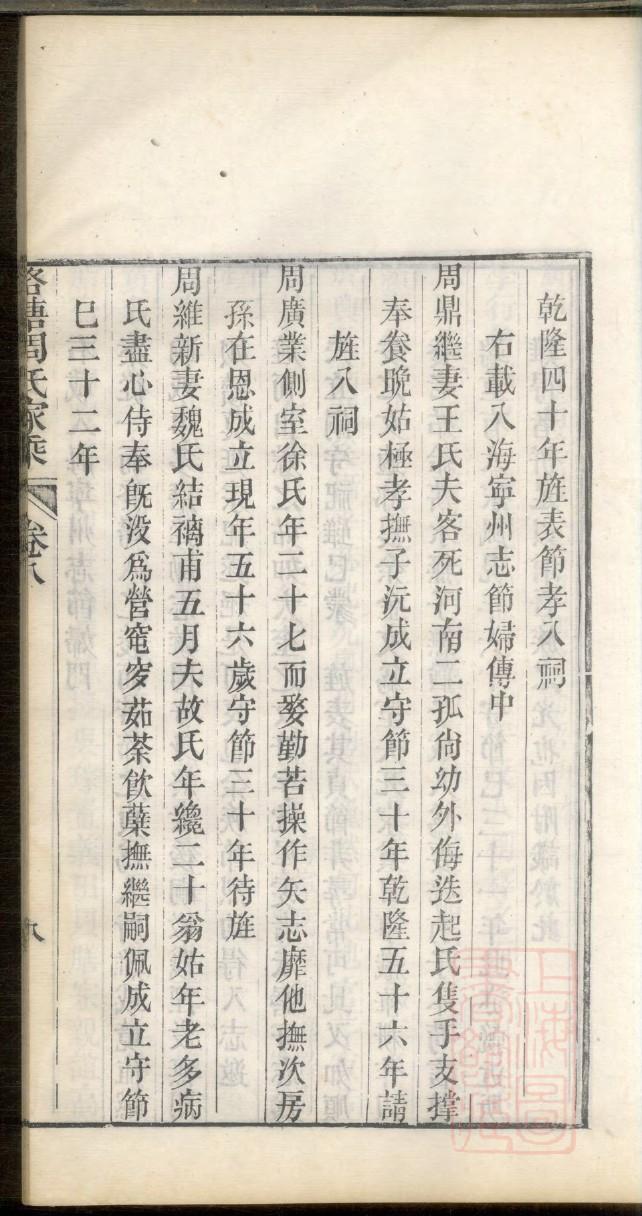 乾隆四十年旌表節孝入祠
右載入海寧州志節婦傳中
周鼎繼妻王氏夫客死河南二孤尙幼外侮迭起氏隻手支撑
奉養晚姑極孝撫子沅成立守節三十年乾隆五十六年請
旌入祠
周廣業側室徐氏年二十七而嫠勤苦操作矢志靡他撫次房
孫在恩成立現年五十六歲守節三十年待旌
周維新妻魏氏結褵甫五月夫故氏年纔二十翁姑年老多病
氏盡心侍奉旣没爲營窀穸茹荼飲蘗撫繼嗣佩成立守節
巳三十二年
洛塘周氏家乘
卷八
九
上海圖書館藏